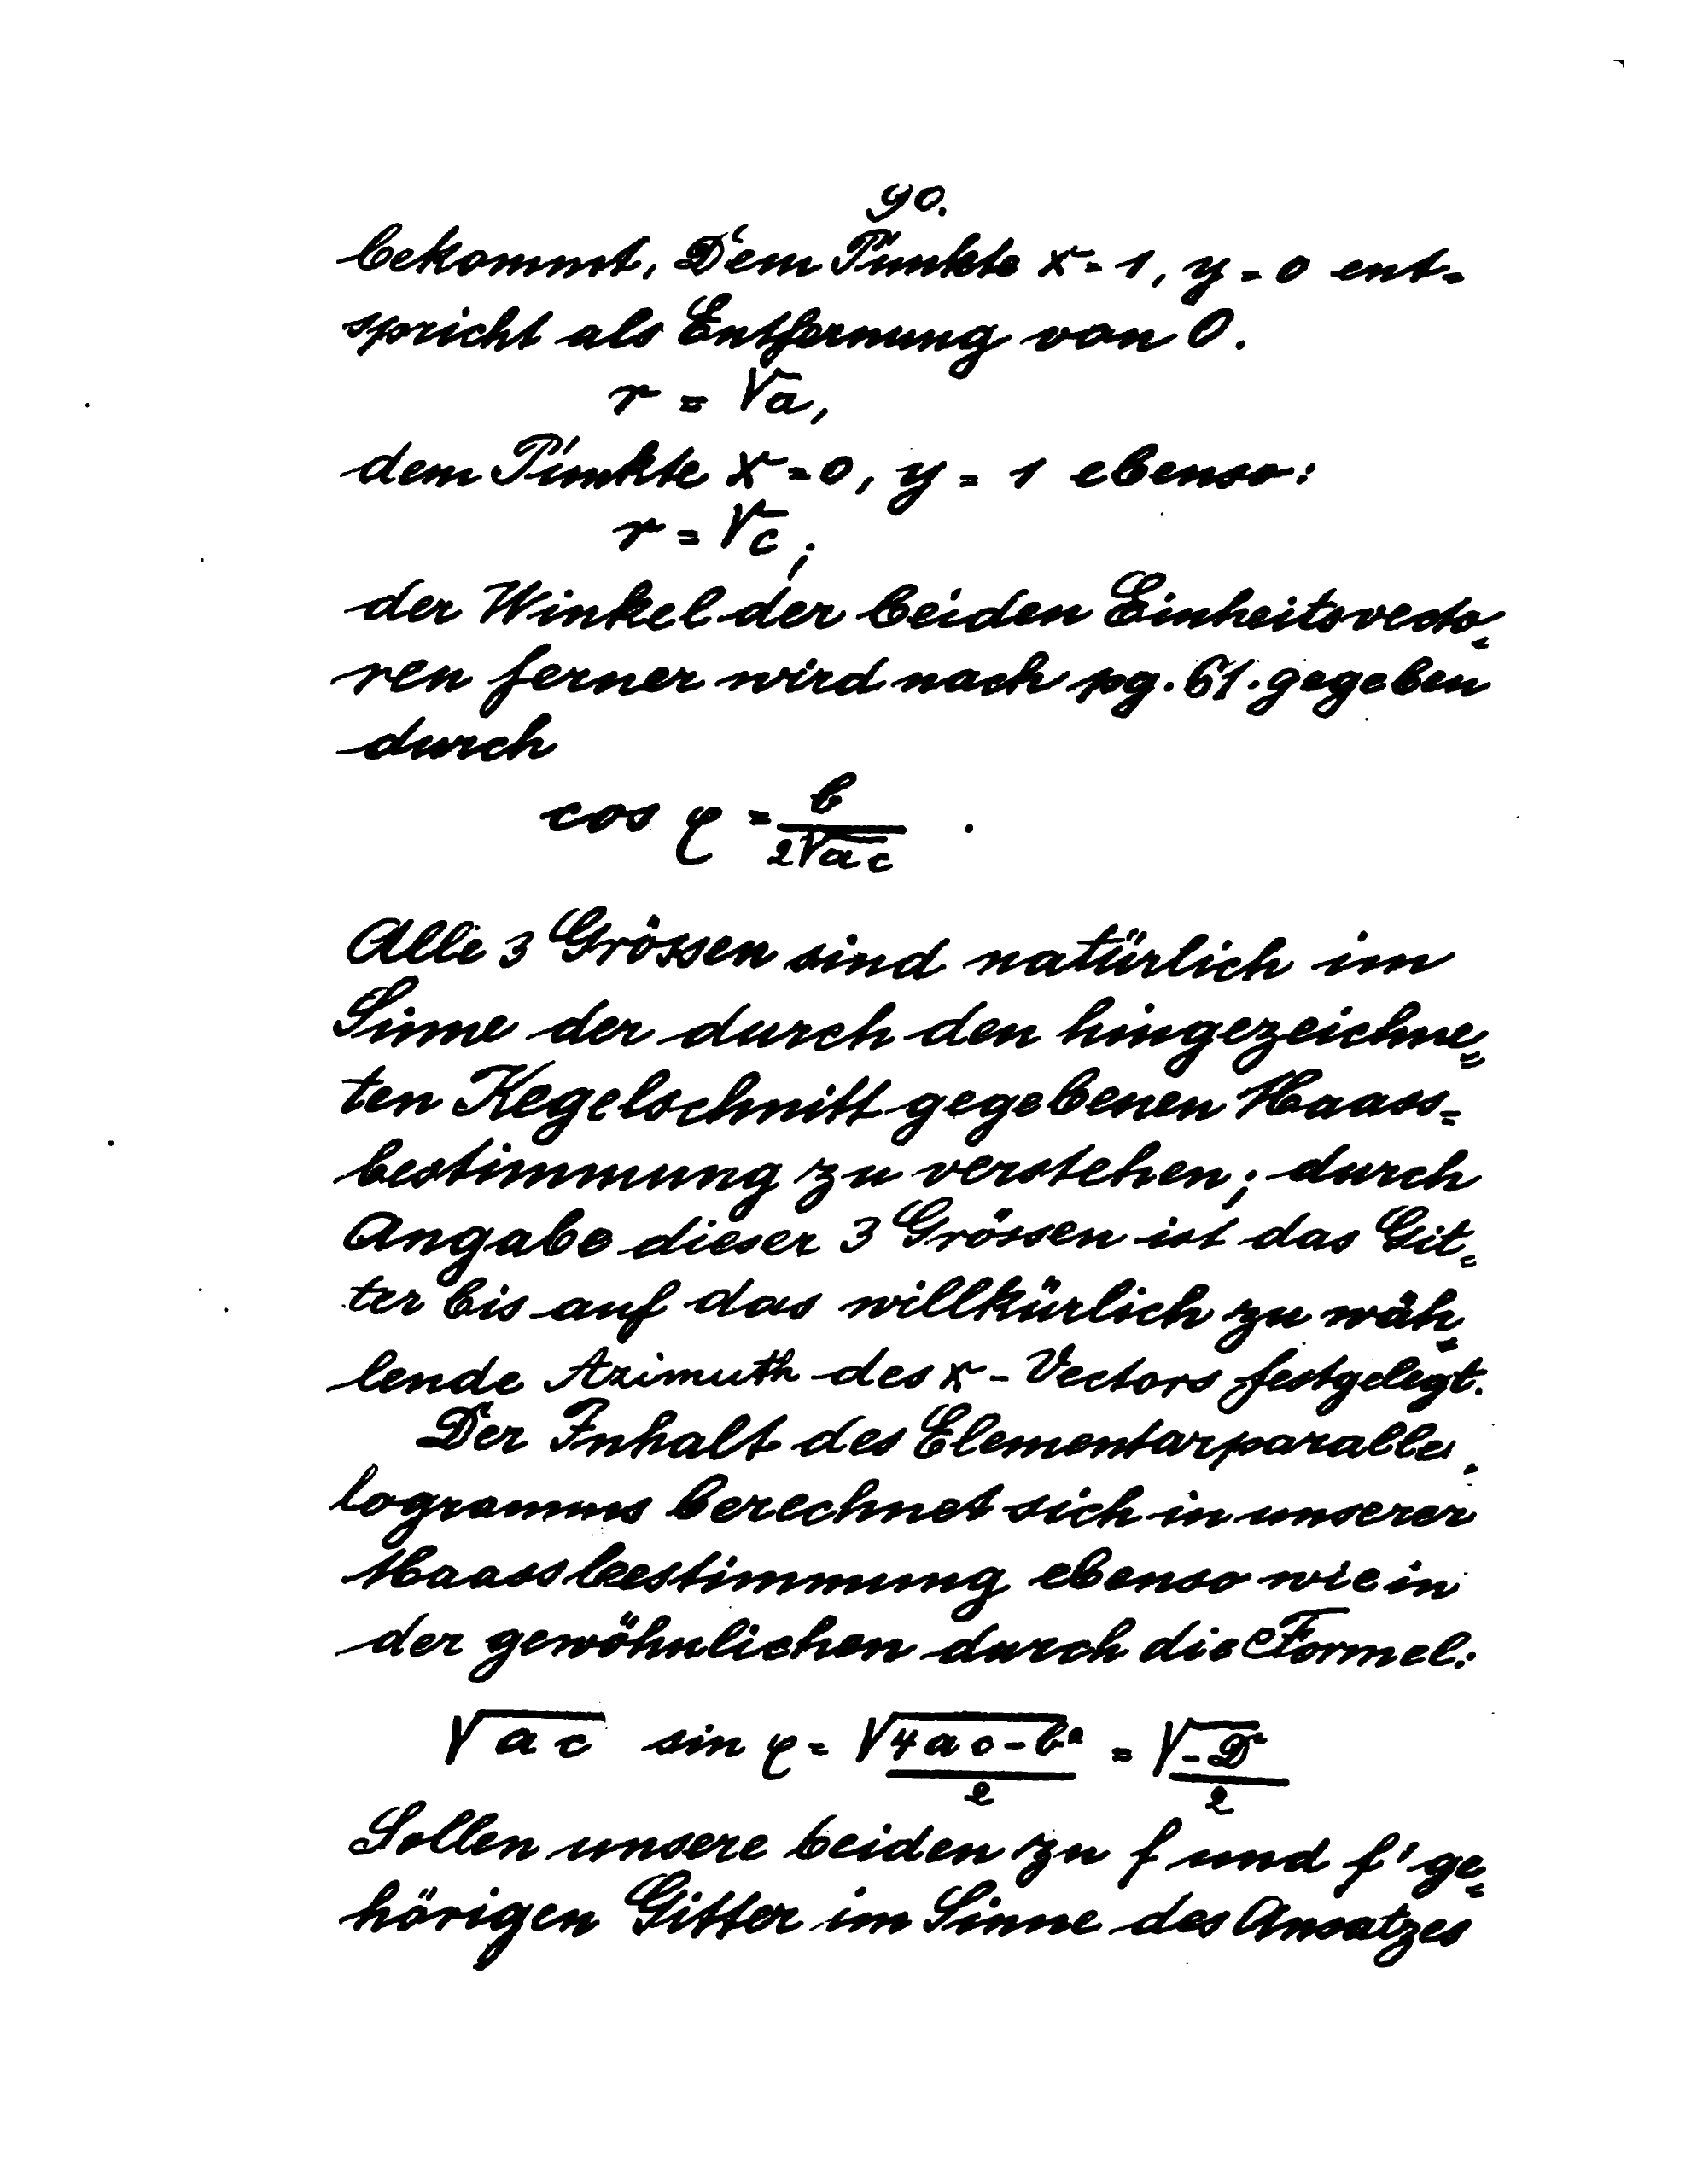 90.
bekommt. Dem Punkte x = 1, y = 0 ent=
spricht als Entfernung von O.
r = √a,
dem Punkte x = 0, y = 1 ebenso:
r = √c;
der Winkel der beiden Einheitsvecto=
ren ferner wird nach pg. 61. gegeben
durch
cos φ = b / 2√ac .
Alle 3 Grössen sind natürlich im
Sinne der durch den hingezeichne=
ten Kegelschnitt gegebenen Maass=
bestimmung zu verstehen; durch
Angabe dieser 3 Grössen ist das Git=
ter bis auf das willkürlich zu wäh=
lende Azimuth des x-Vectors festgelegt.
Der Inhalt des Elementarparalle=
logramms berechnet sich in unserer
Maassbestimmung ebenso wie in
der gewöhnlichen durch die Formel:
√ac sin φ = √4ac-b² / 2 = √-D / 2
Sollen unsere beiden zu f und f' ge=
hörigen Gitter im Sinne des Ansatzes